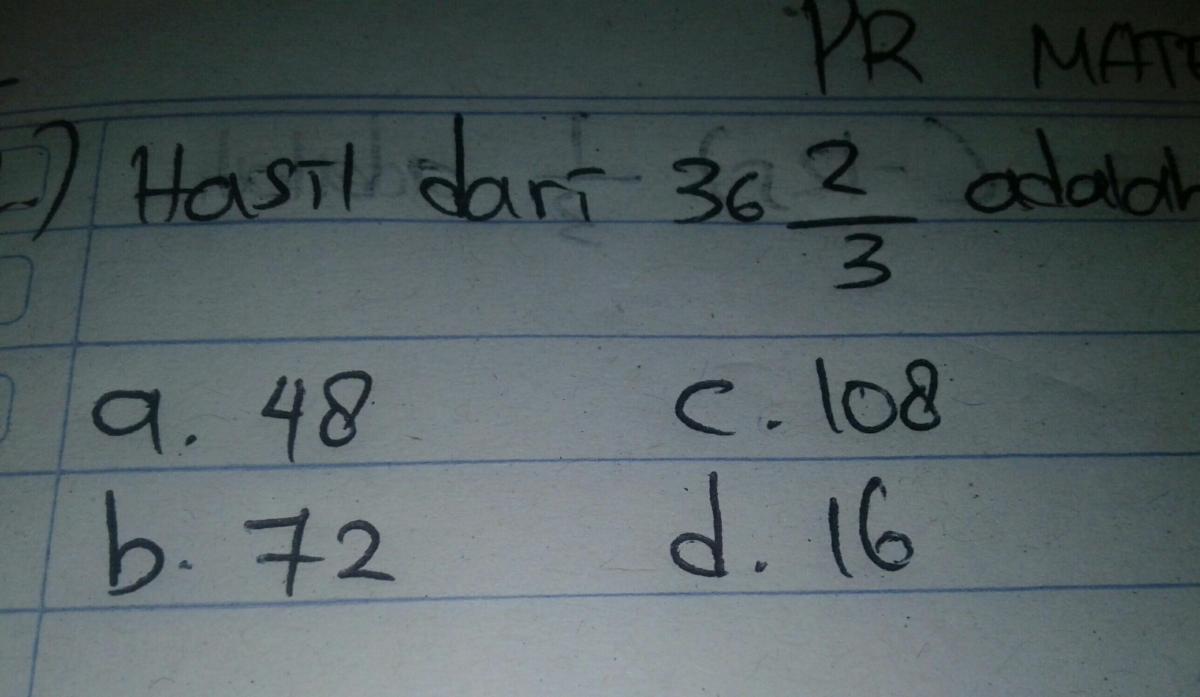 PR MATE
) Hasil dari 36 2/3 adalah
a. 48 c. 108
b. 72 d. 16